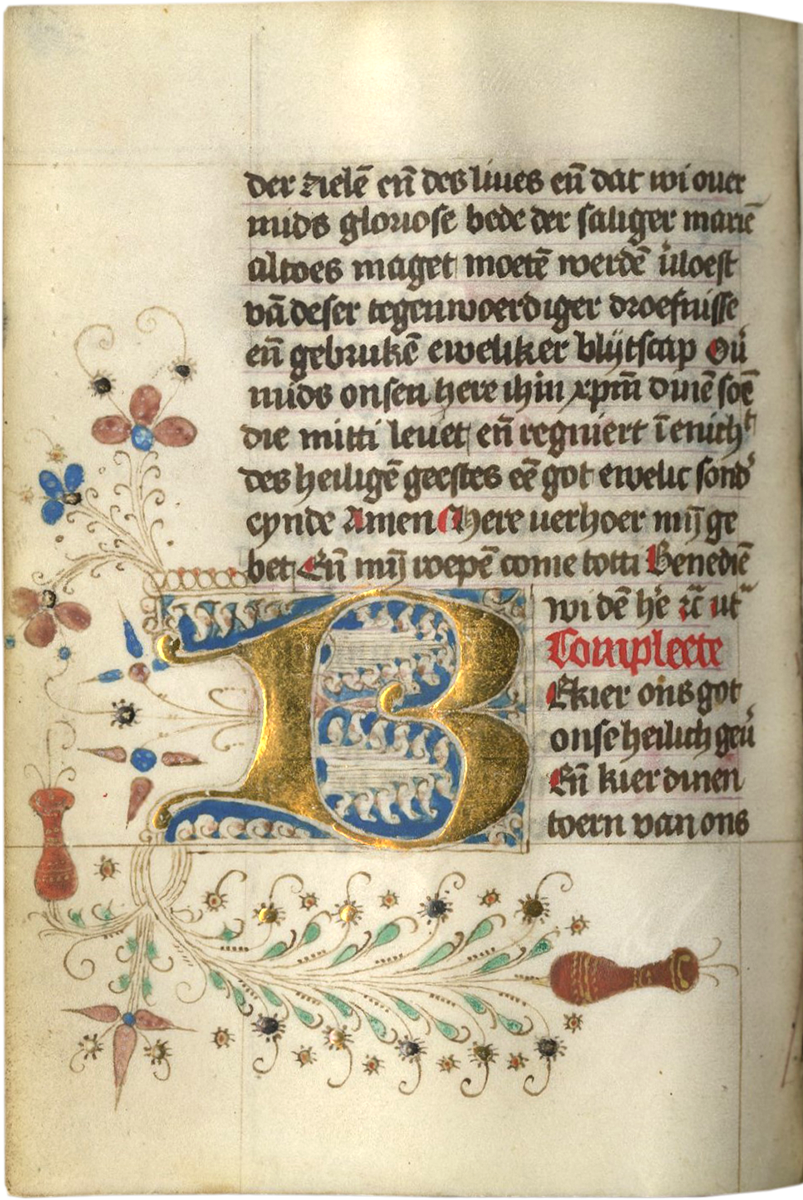 der zielē en̄ des liues en̄ dat wi ouer
mids gloriose bede der saliger mariē
altoes maget moetē werdē v̓loest
vā deser tegenwoerdiger droefnisse
en̄ gebrukē eweliker blijtscap Ou̓
mids onsen here ihm xpm̄ dinē soē
die mitti leuet en̄ regniert ī enich
des heiligē geestes eē got ewelic sond̓
eynde Amen O here uerhoer mijn ge
bet En̄ mijn roepē come totti Benediē
wi dē he̓ rc̄ ut̄
Complecte
B
Ekier ons got
onse heilich geu̓
En̄ kier dinen
toern van ons